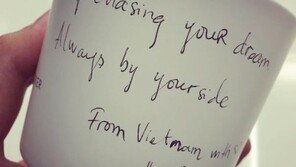 chasing your dream
Always by your side
From Vietnam with